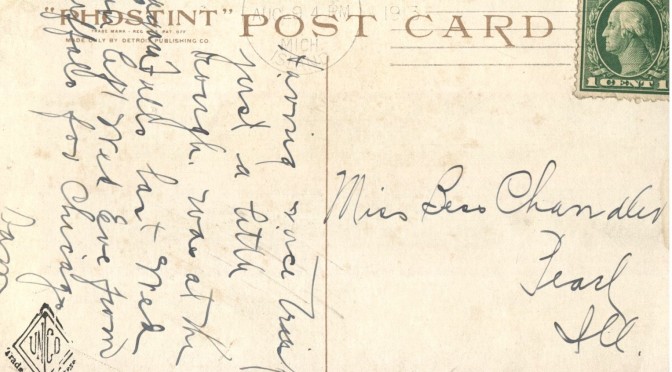 "PHOSTINT" POST CARD
TRADE MARK - REG. U.S. PAT. OFF
MADE ONLY BY DETROIT PUBLISHING CO.
AUG 9 4 PM 
MICH.
1 CENT 1
Having nice trip
just a little
tough. was at the
Falls last Wed.
left Wed Eve from
Buffalo for Chicago
Miss Bess Chandler
Pearl
Ill.
UNCO
Trade